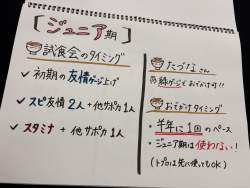 【ジュニア期】
試食会のタイミング
✓ 初期の友情ゲージ上げ
✓ スピ友情2人+他サポカ1人
✓ スタミナ + 他サポカ1人
たづなさん
緑ゲージでおでかけ可!!
おでかけタイミング
・半年に1回のペース
・ジュニア期は使わない!
(トプロは先に使ってもOK)